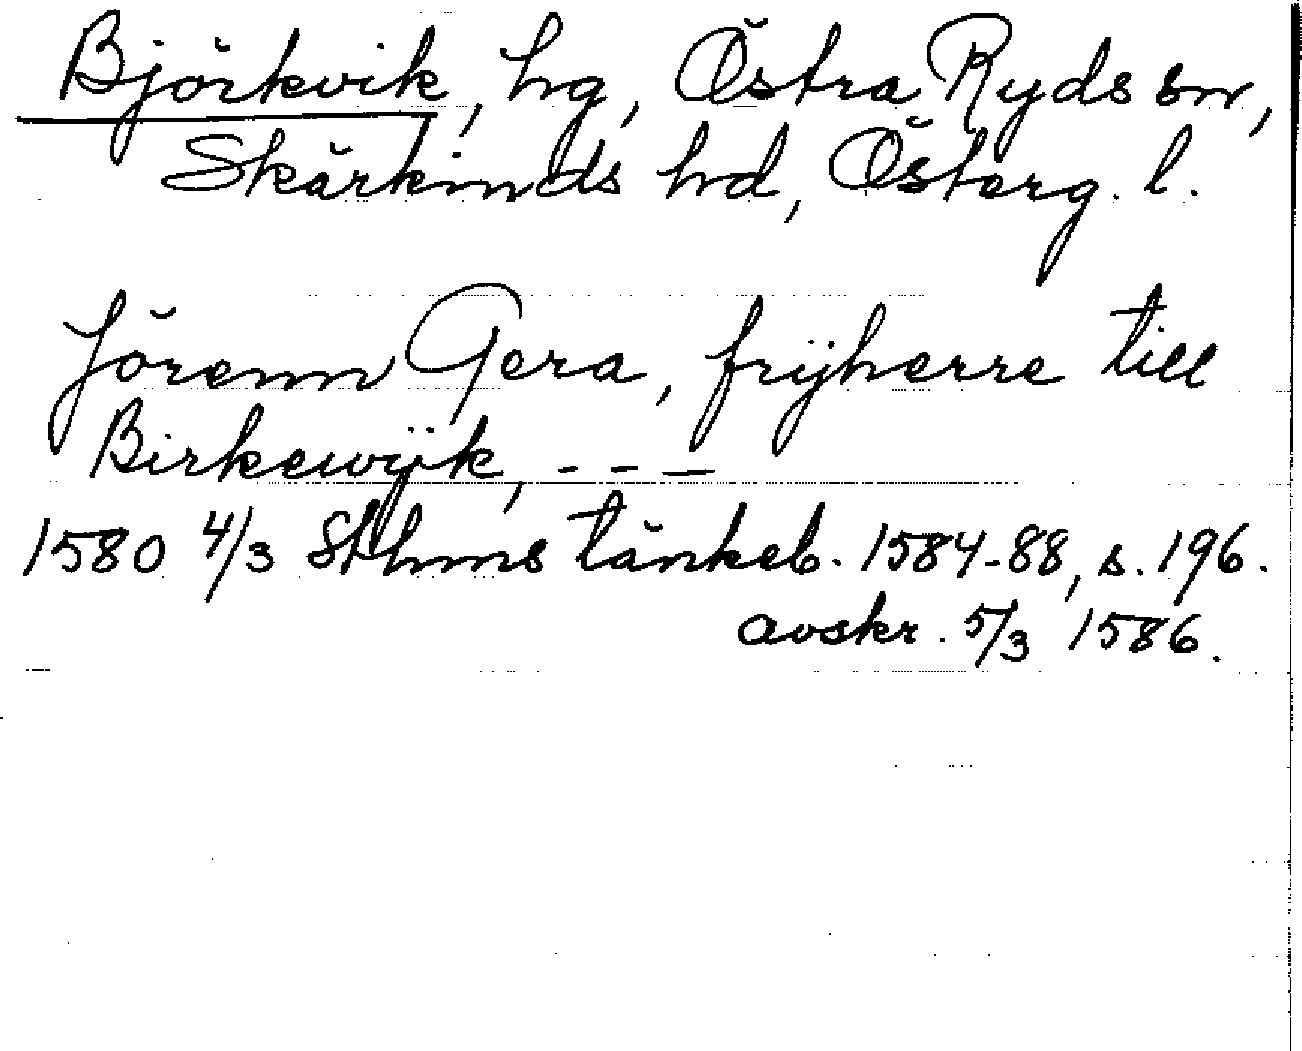 Björkvik, hg, Östra Ryds sn,
Skärkinds hd, Österg. l.
Jörenn Gera, frijherre till
Birkewÿk, - - -
1580 4/3 Sthms tänkeb. 1584-88, s. 196.
avskr. 5/3 1586.